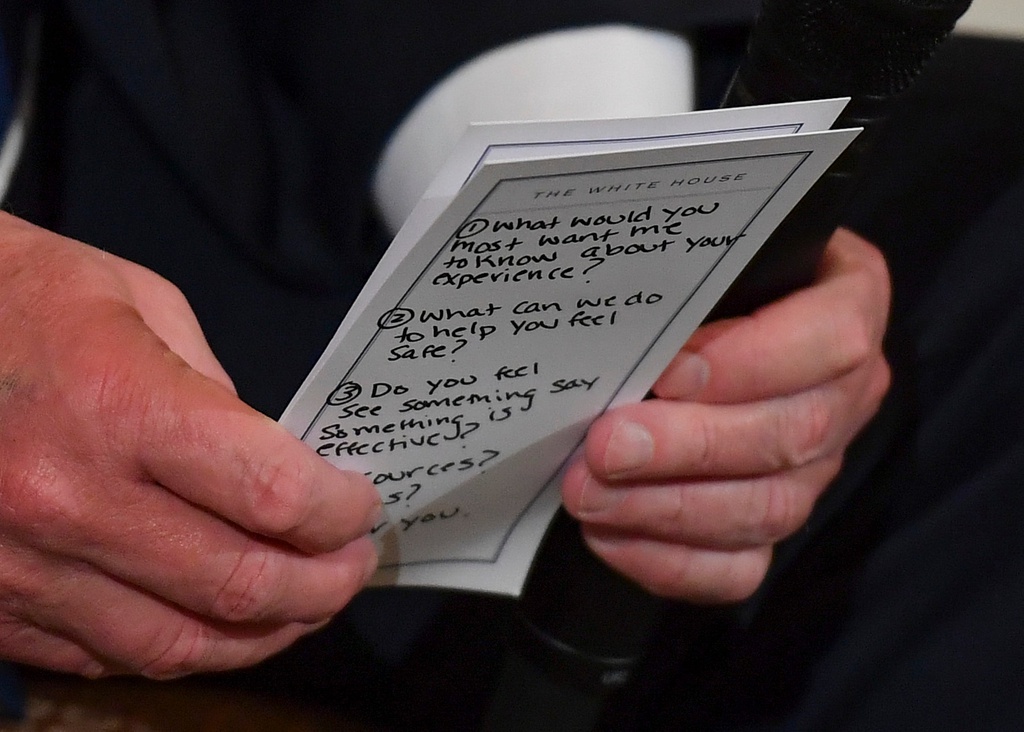 THE WHITE HOUSE
① What would you
most want me
to know about your
experience?
② What can we do
to help you feel
safe?
③ Do you feel
see something say
something is
effective?
ources?
s?
you.